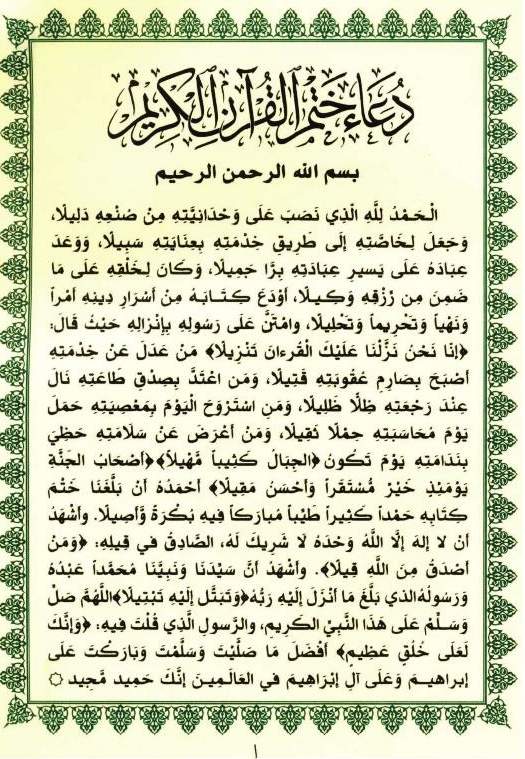 دُعَاءُ خَتْمِ ٱلْقُرْآنِ ٱلْكَرِيمِ
بسم الله الرحمن الرحيم
الْـحَمْدُ لِلَّهِ الَّذِي نَصَبَ عَلَى وَحْدَانِيَّتِهِ مِنْ صُنْعِهِ دَلِيلًا،
وَجَعَلَ لِخَاصَّتِهِ إِلَى طَرِيقِ خِدْمَتِهِ بِعِنَايَتِهِ سَبِيلًا، وَوَعَدَ
عِبَادَهُ عَلَى يَسيرِ عِبَادَتِهِ بِرًّا جَمِيلًا، وَكَانَ لِخَلْقِهِ عَلَى مَا
ضَمِنَ مِن رِزْقِهِ وَكِـيلًا، أَوْدَعَ كِـتَـابَـهُ مِنْ أَسْرَارِ دِينِهِ أَمْراً
وَنَهْياً وَتَحْرِيماً وَتَحْلِيلًا، وامْتَنَّ عَلَى رَسُولِهِ بِإنْزالِهِ حَيْثُ قَالَ:
﴿إِنَّا نَحْنُ نَزَّلْنَا عَلَيْكَ الْقُرءانَ تَنْزِيلًا﴾ مَنْ عَدَلَ عَنْ خِدْمَتِهِ
أَصْبَحَ بِصَارِمِ عُقُوبَتِهِ قَتِيلًا، وَمَن اعْتَدَّ بِصِدْقِ طَاعَتِهِ نَالَ
عِنْدَ رَجْعَتِهِ ظِلًّا ظَلِيلًا، وَمَنِ اسْتَرْوَحَ الْيَوْمَ بِمَعْصِيَتِهِ حَمَلَ
يَوْمَ مُحَاسَبَتِهِ حِمْلًا ثَقِيلًا، وَمَنْ أَعْرَضَ عَنْ سَلَامَتِهِ حَظِيَ
بِنَدَامَتِهِ يَوْمَ تَكُونُ ﴿الجِبَالُ كَثِيباً مَّهِيلاً﴾ ﴿أَصْحَابُ الجَنَّةِ
يَوْمَئِذٍ خَيْرٌ مُّسْتَقَرّاً وَأَحْسَنُ مَقِيلًا﴾ أَحْمَدُهُ أَنْ بَلَّغَنَا خَتْمَ
كِتَابِهِ حَمْداً كَثِيراً طَيِّباً مُبَارَكاً فِيهِ بُكْرَةً وَّأَصِيلًا. وأَشْهَدُ
أَن لا إلهَ إِلَّا اللَّهُ وَحْدَهُ لَا شَرِيكَ لَهُ، الصَّادِقُ في قِيلِهِ: ﴿وَمَنْ
أَصْدَقُ مِنَ اللَّهِ قِيلًا﴾. وأَشْهَدُ أَنَّ سَيِّدَنَا وَنَبِيَّنَا مُحَمَّداً عَبْدُهُ
وَرَسُولُهُ الذي بَلَّغَ مَا أَنْزَلَ إِلَيْهِ رَبُّهُ ﴿وَتَبَتَّل إِلَيْهِ تَبْتِيلًا﴾ اللَّهُمَّ صَلِّ
وَسَلِّمْ عَلَى هَذَا النَّبِيِّ الكَرِيمِ، والرَّسولِ الَّذِي قُلْتَ فِيهِ: ﴿وَإِنَّكَ
لَعَلَى خُلُقٍ عَظِيمٍ﴾ أَفْضَلَ مَا صَلَّيْتَ وَسَلَّمْتَ وَبَارَكْتَ عَلَى
إبراهيـمَ وَعَلَى آلِ إبْرَاهِيمَ في العَالَمِينَ إِنَّكَ حَمِيد مَّجِيد ۞
١